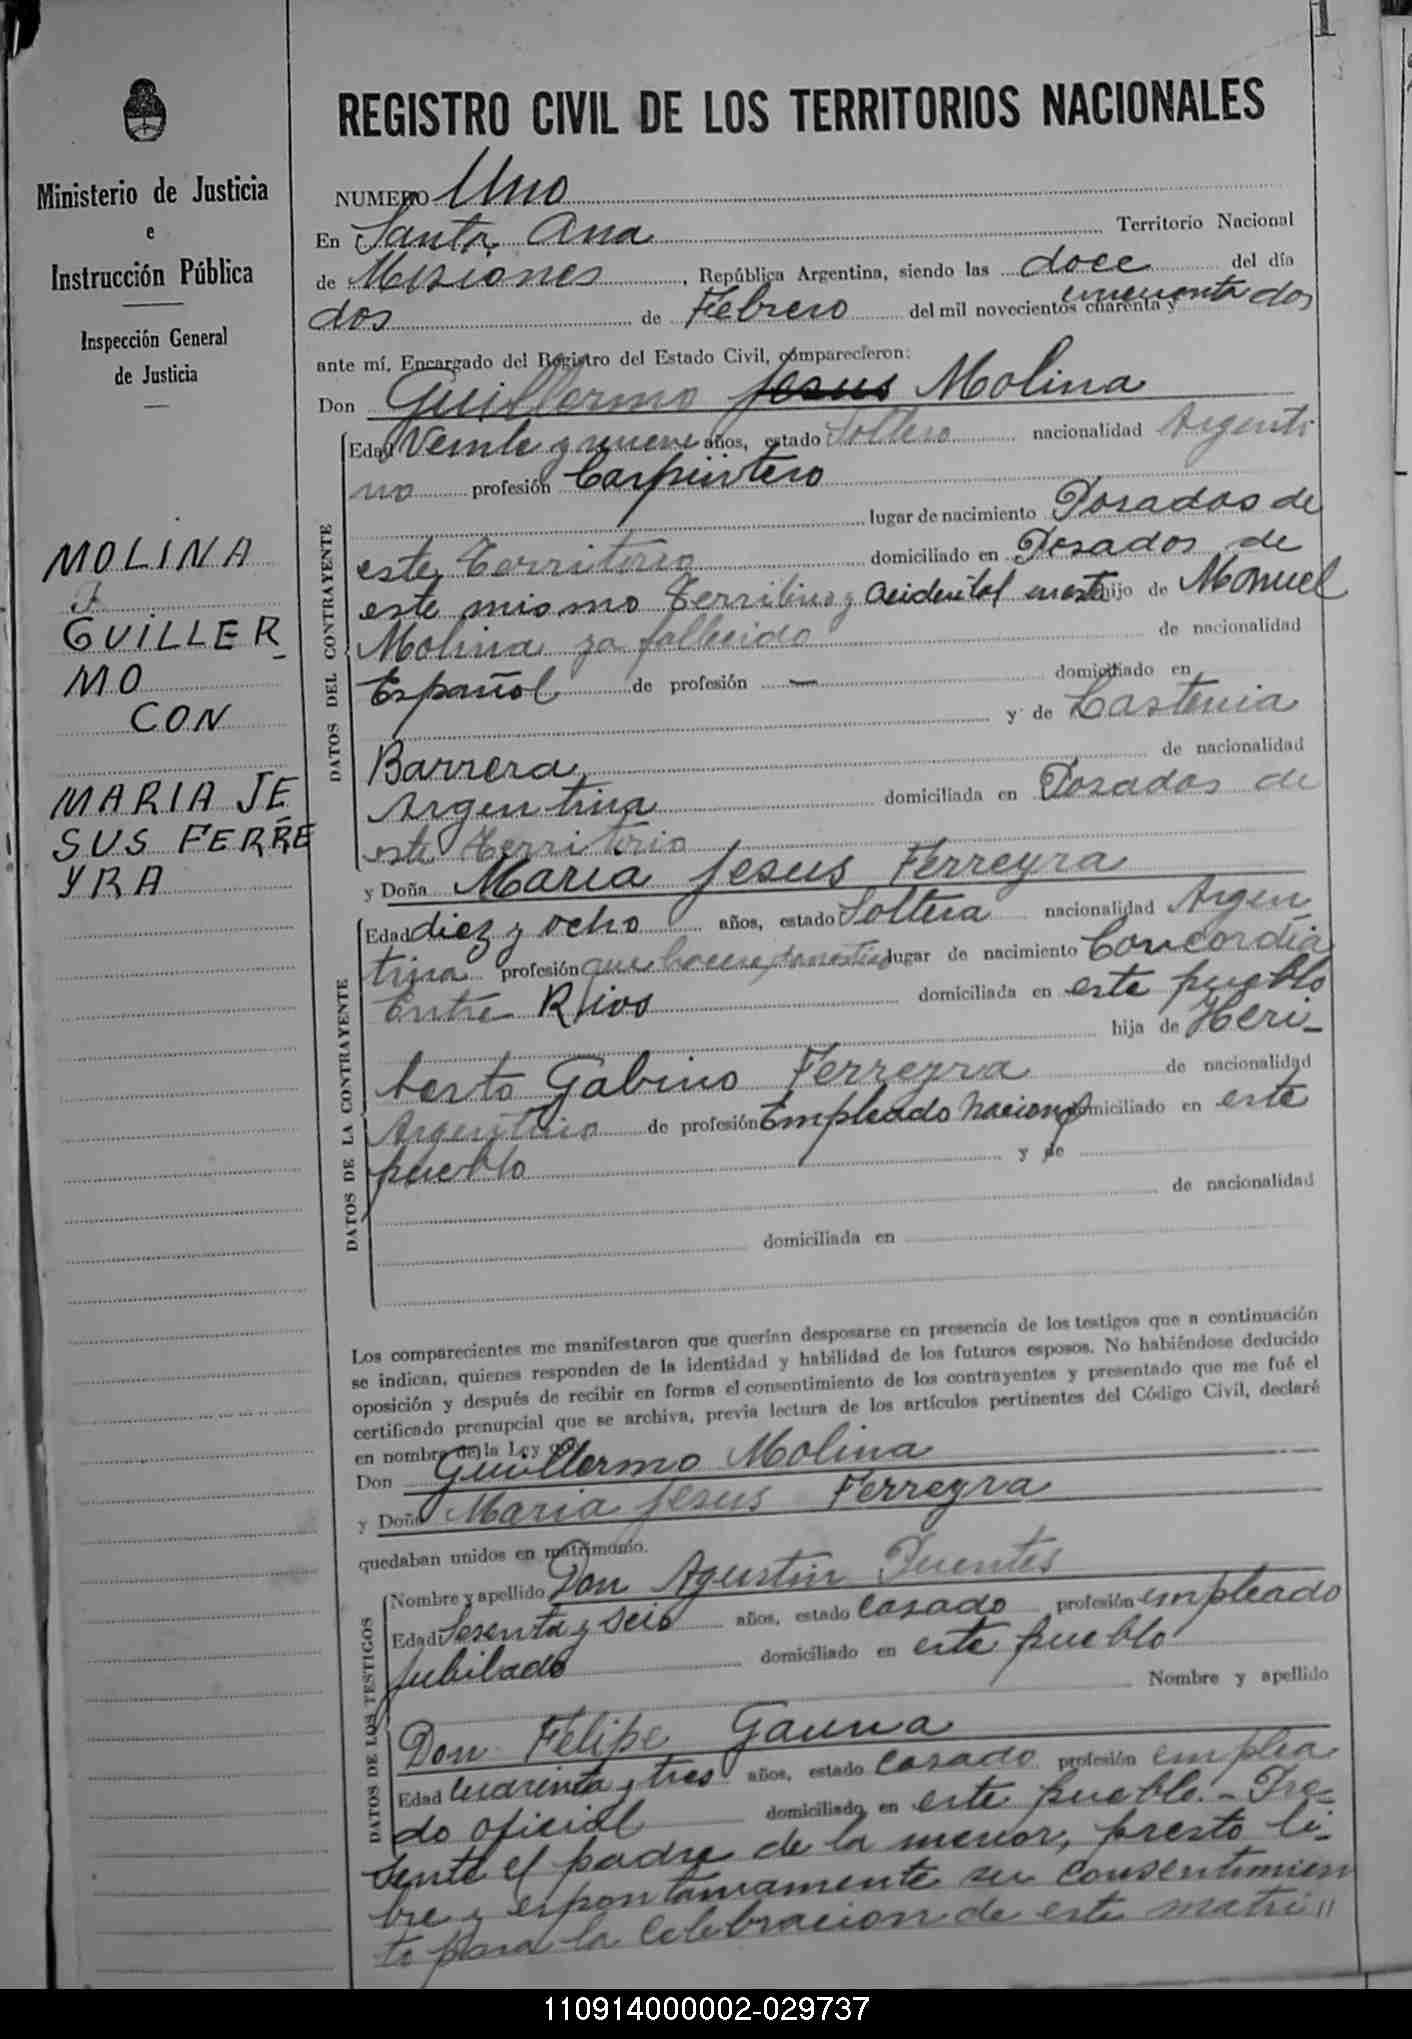 1
REGISTRO CIVIL DE LOS TERRITORIOS NACIONALES
Ministerio de Justicia
e
Instrucción Pública
Inspección General
de Justicia
MOLINA
GUILLER
MO
CON
MARIA JE
SUS FERRE
YRA
NUMERO Uno
En Santa Ana Territorio Nacional
de Misiones, República Argentina, siendo las doce del día
dos de Febrero del mil novecientos cuarenta y cincuenta dos
ante mí, Encargado del Registro del Estado Civil, comparecieron:
Don Guillermo Jesus Molina
DATOS DEL CONTRAYENTE
Edad Veinte y nueve años, estado Soltero nacionalidad Argenti
no profesión Carpintero
lugar de nacimiento Posadas de
este Territorio domiciliado en Posadas de
este mismo Territorio y accidental hijo de Manuel
Molina ya fallecido de nacionalidad
Español de profesión — domiciliado en
y de Castenia
Barrera de nacionalidad
Argentina domiciliada en Posadas de
este Territorio
y Doña Maria Jesus Ferreyra
DATOS DE LA CONTRAYENTE
Edad diez y ocho años, estado Soltera nacionalidad Argen
tina profesión que haceres domesticos lugar de nacimiento Concordia
Entre Rios domiciliada en este pueblo
hija de Heri-
berto Gabino Ferreyra de nacionalidad
Argentino de profesión Empleado Nacional domiciliado en este
pueblo y de
de nacionalidad
domiciliada en
Los comparecientes me manifestaron que querían desposarse en presencia de los testigos que a continuación
se indican, quienes responden de la identidad y habilidad de los futuros esposos. No habiéndose deducido
oposición y después de recibir en forma el consentimiento de los contrayentes y presentado que me fué el
certificado prenupcial que se archiva, previa lectura de los artículos pertinentes del Código Civil, declaré
en nombre de la Ley que
Don Guillermo Molina
y Doña Maria Jesus Ferreyra
quedaban unidos en matrimonio.
DATOS DE LOS TESTIGOS
Nombre y apellido Don Agustin Puentes
Edad Sesenta y seis años, estado Casado profesión empleado
Jubilado domiciliado en este pueblo
Nombre y apellido
Don Felipe Gauna
Edad Cuarenta y tres años, estado Casado profesión emplea
do oficial domiciliado en este pueblo.- Pre-
sente el padre de la menor, presto li-
bre y espontaneamente su consentimien
to para la celebracion de este matri"
110914000002-029737